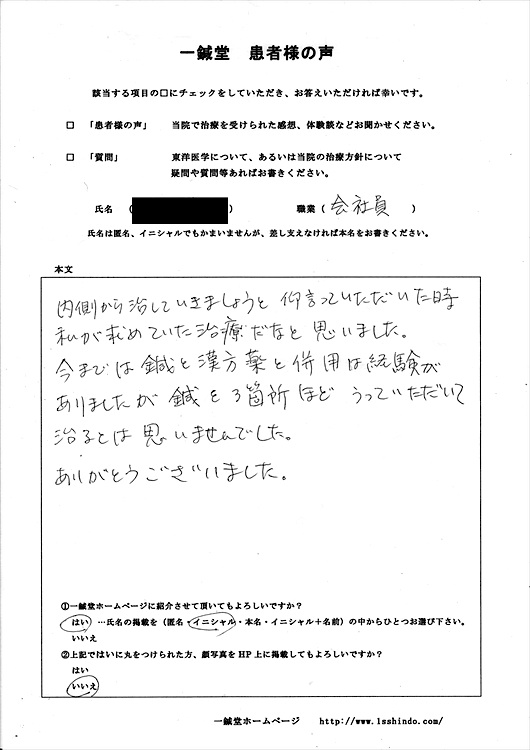 一鍼堂 患者様の声
該当する項目の□にチェックをしていただき、お答えいただければ幸いです。
□ 「患者様の声」 当院で治療を受けられた感想、体験談などお聞かせください。
□ 「質問」 東洋医学について、あるいは当院の治療方針について
疑問や質問等あればお書きください。
氏名 ( ) 職業 ( 会社員 )
氏名は匿名、イニシャルでもかまいませんが、差し支えなければ本名をお書きください。
本文
内側から治していきましょうと 仰言っていただいた時
私が求めていた治療だなと思いました。
今までは鍼と漢方薬と併用は経験が
ありましたが 鍼を3箇所ほど うっていただいて
治るとは思いませんでした。
ありがとうございました。
①一鍼堂ホームページに紹介させて頂いてもよろしいですか？
はい …氏名の掲載を（匿名・イニシャル・本名・イニシャル＋名前）の中からひとつお選び下さい。
いいえ
②上記ではいに丸をつけられた方、顔写真をHP上に掲載してもよろしいですか？
はい
いいえ
一鍼堂ホームページ http://www.1sshindo.com/